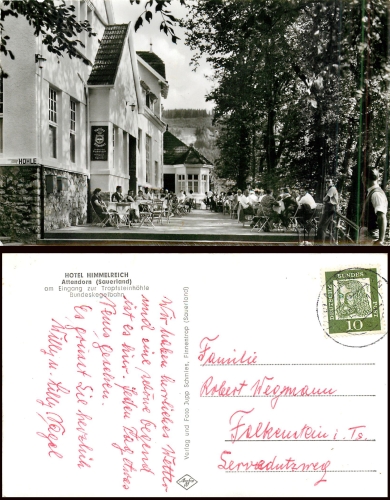 HÖHLE
HOTEL HIMMELREICH
Attendorn (Sauerland)
am Eingang zur Tropfsteinhöhle
Bundeskegelbahn
Wir haben herrliches Wetter
und eine schöne Gegend
ist es hier. Jeden Tag etwas
Es grüsst Sie herzlich
Willy u. Lilly Vogel
Verlag und Foto Jupp Schmies, Finnentrop (Sauerland)
DEUTSCHE BUNDESPOST
10
Familie
Robert Wegmann
Falkenstein i. Ts.
Servadutzweg